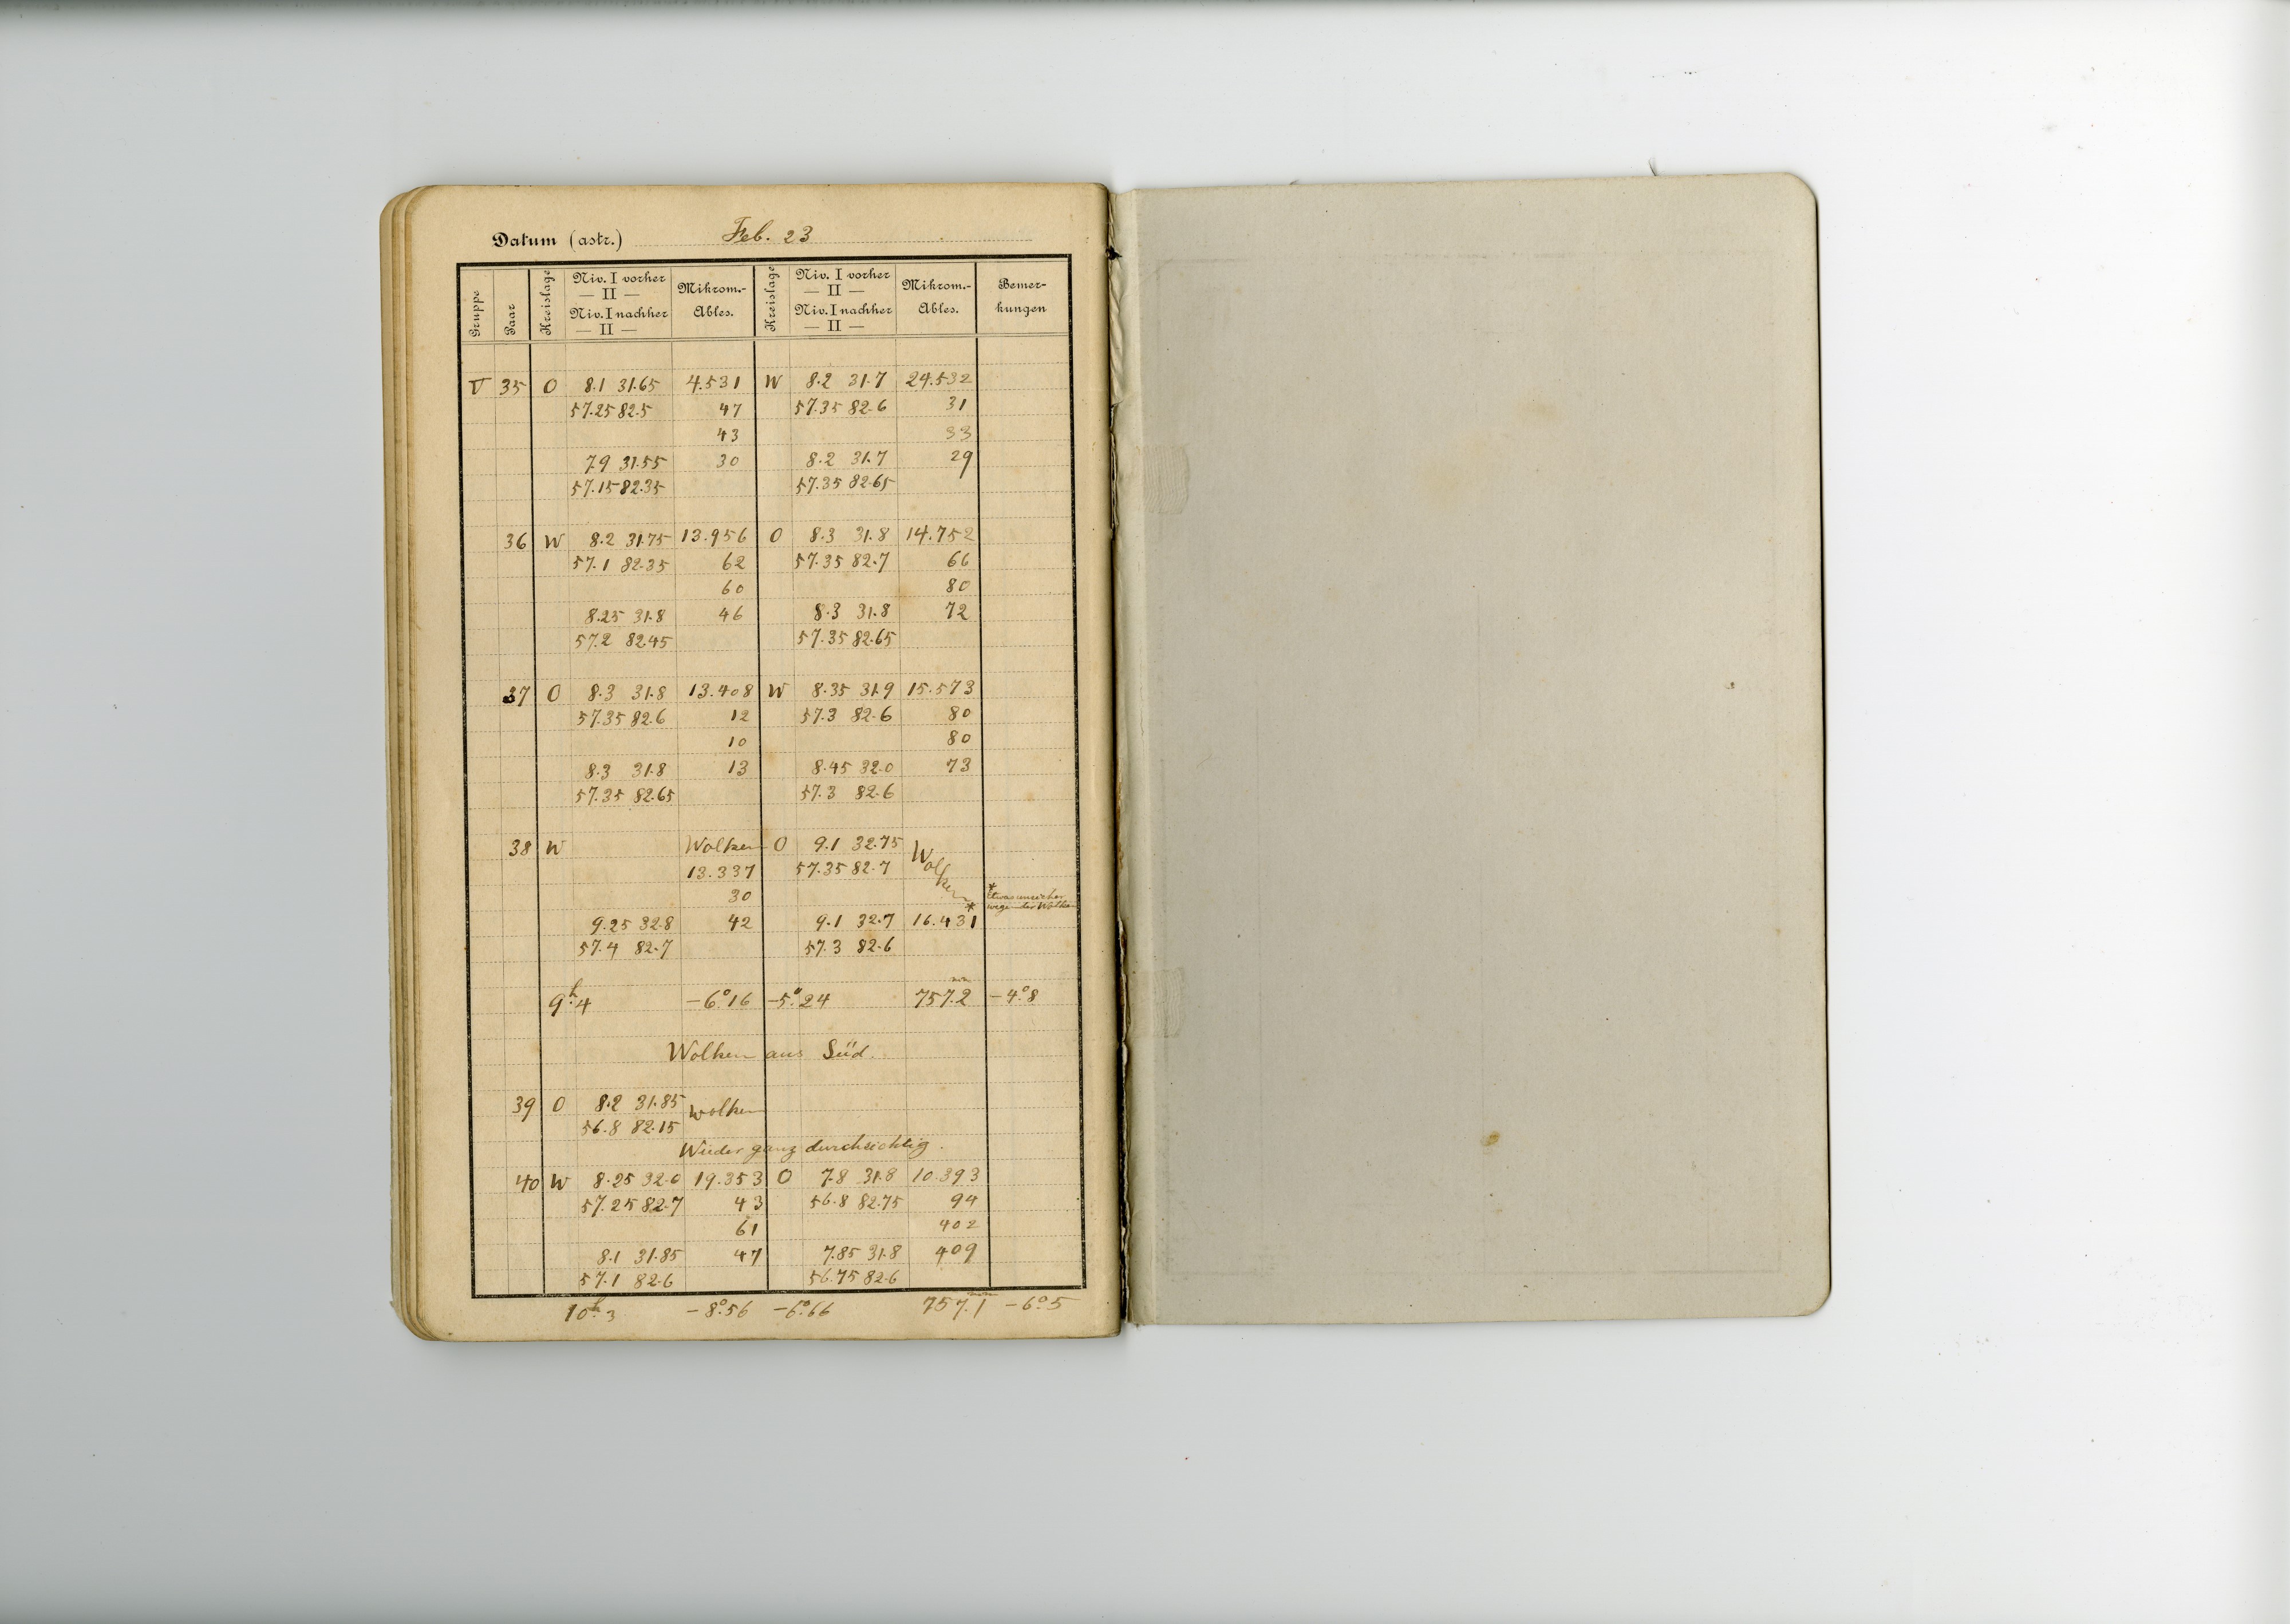 Datum (astr.) Feb. 23
Gruppe Paar Kreislage Niv. I vorher — II — Niv. I nachher — II — Mikrom.-Ables. Kreislage Niv. I vorher — II — Niv. I nachher — II — Mikrom.-Ables. Bemer-kungen
V 35 O 8.1 31.65 4.531 W 8.2 31.7 24.532
57.25 82.5 47 57.35 82.6 31
43 33
7.9 31.55 30 8.2 31.7 29
57.15 82.35 57.35 82.65
36 W 8.2 31.75 13.956 O 8.3 31.8 14.752
57.1 82.35 62 57.35 82.7 66
60 80
8.25 31.8 46 8.3 31.8 72
57.2 82.45 57.35 82.65
37 O 8.3 31.8 13.408 W 8.35 31.9 15.573
57.35 82.6 12 57.3 82.6 80
10 80
8.3 31.8 13 8.45 32.0 73
57.35 82.65 57.3 82.6
38 W Wolken O 9.1 32.75 Wolken
13.337 57.35 82.7
30 * Etwas unsicher
wegen der Wolken
9.25 32.8 42 9.1 32.7 16.431*
57.4 82.7 57.3 82.6
9h.4 -6°.16 -5°.24 757.2mm -4°.8
Wolken aus Süd.
39 O 8.2 31.85 Wolken
56.8 82.15
Wieder ganz durchsichtig.
40 W 8.25 32.0 19.353 O 7.8 31.8 10.393
57.25 82.7 43 56.8 82.75 94
61 402
8.1 31.85 47 7.85 31.8 409
57.1 82.6 56.75 82.6
10h.3 -8°.56 -6°.66 757.1mm -6°.5